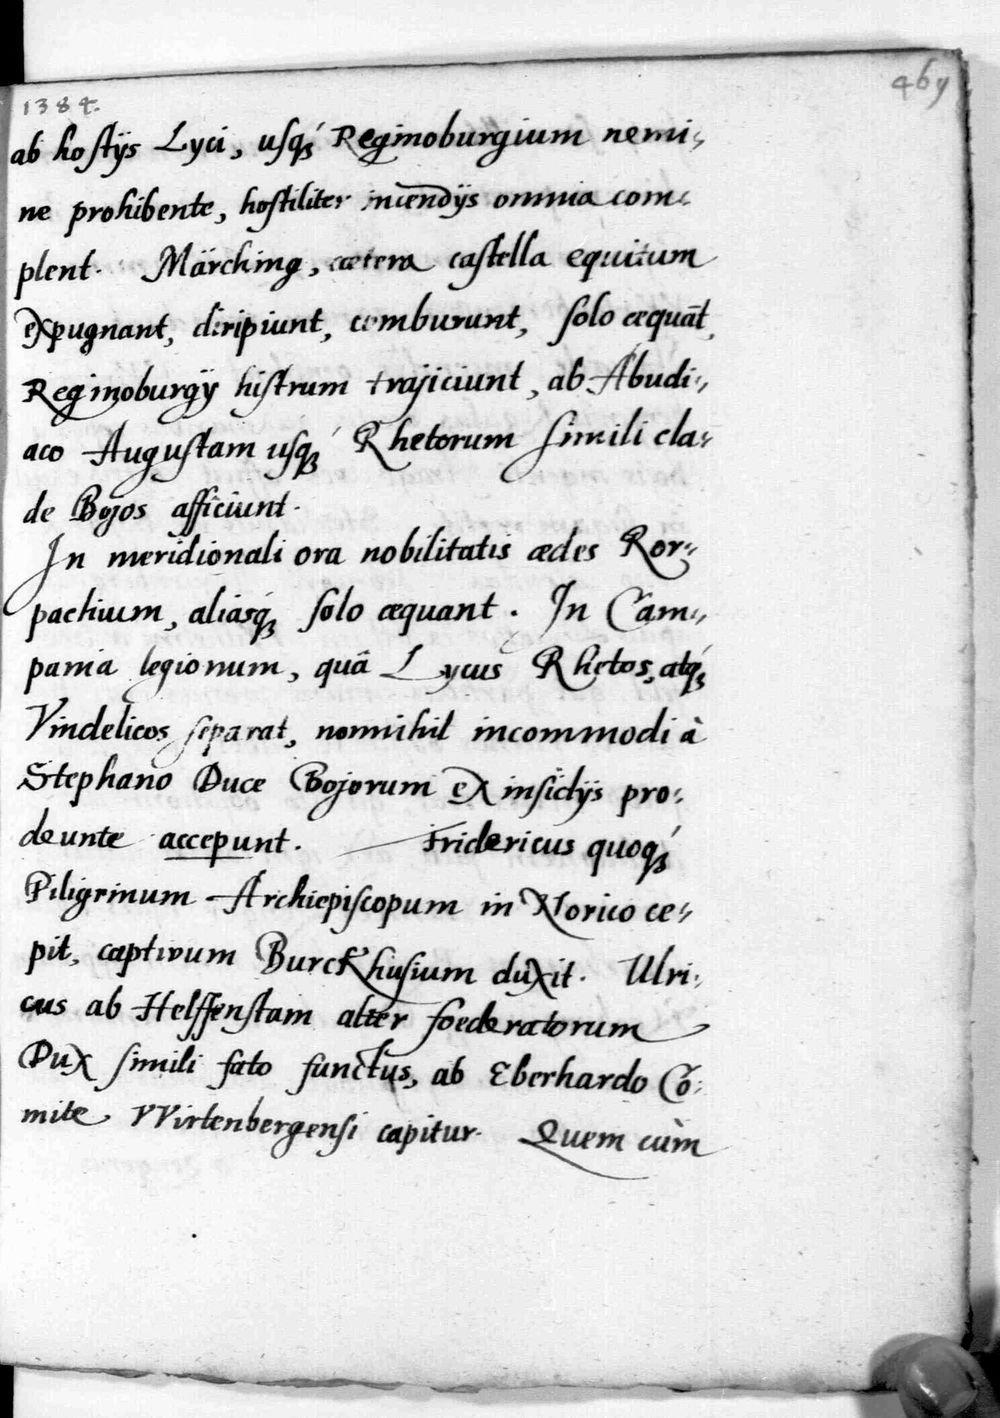 469
1384.
ab hostijs Lyci, usq́ꝫ Reginoburgium nemi-
ne prohibente, hostiliter incendijs omnia com-
plent. Märching, cætera castella equitum
expugnant, diripiunt, comburunt, solo æquāt,
Reginoburgij histrum trajiciunt, ab Abudi-
aco Augustam usq́ꝫ Rhetorum simili cla-
de Bojos afficiunt.
In meridionali ora nobilitatis ædes Ror-
pachium, aliasq́ꝫ solo æquant. In Cam-
pania legionum, quâ Lycus Rhetos, atq́ꝫ
Vindelicos separat, nonnihil incommodi à
Stephano Duce Bojorum ex insidijs pro-
deunte accepunt. Fridericus quoq́ꝫ
Piligrinum Archiepiscopum in Norico ce-
pit, captivum Burckhusium duxit. Ulri-
cus ab Helffenstain alter foederatorum
Dux simili fato functus, ab Eberhardo Co-
mite VVirtenbergensi capitur. Quem cùm